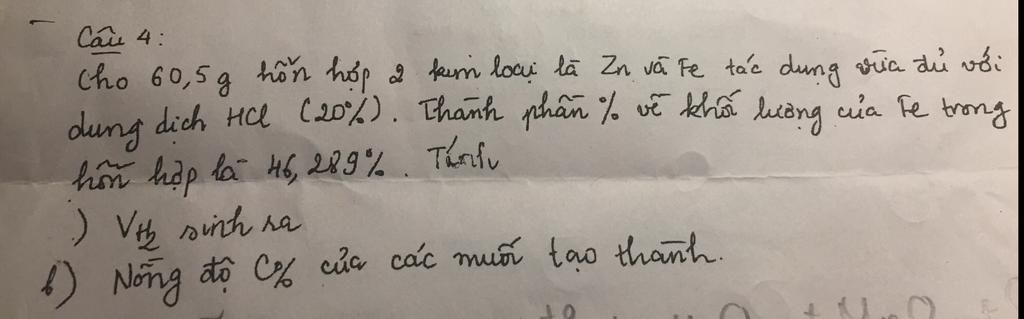 Câu 4:
Cho 60,5 g hỗn hợp 2 kim loại là Zn và Fe tác dụng vừa đủ với
dung dịch HCl (20%). Thành phần % về khối lượng của Fe trong
hỗn hợp là 46,289%. Tính
) VH2 sinh ra
b) Nồng độ C% của các muối tạo thành.